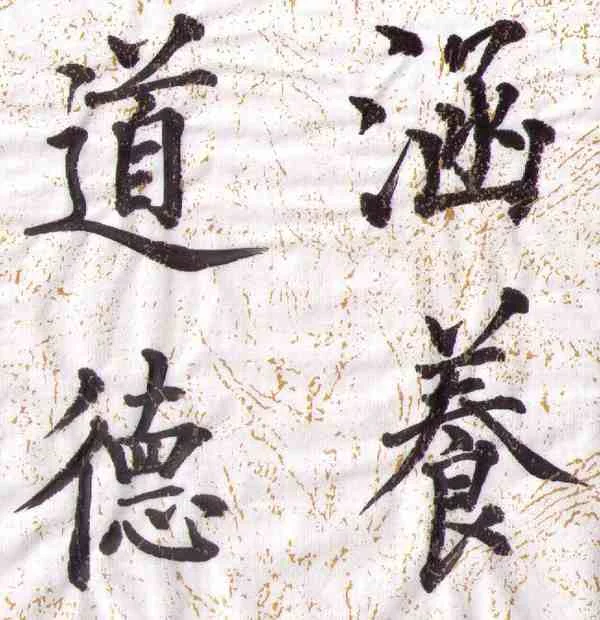 涵養
道德